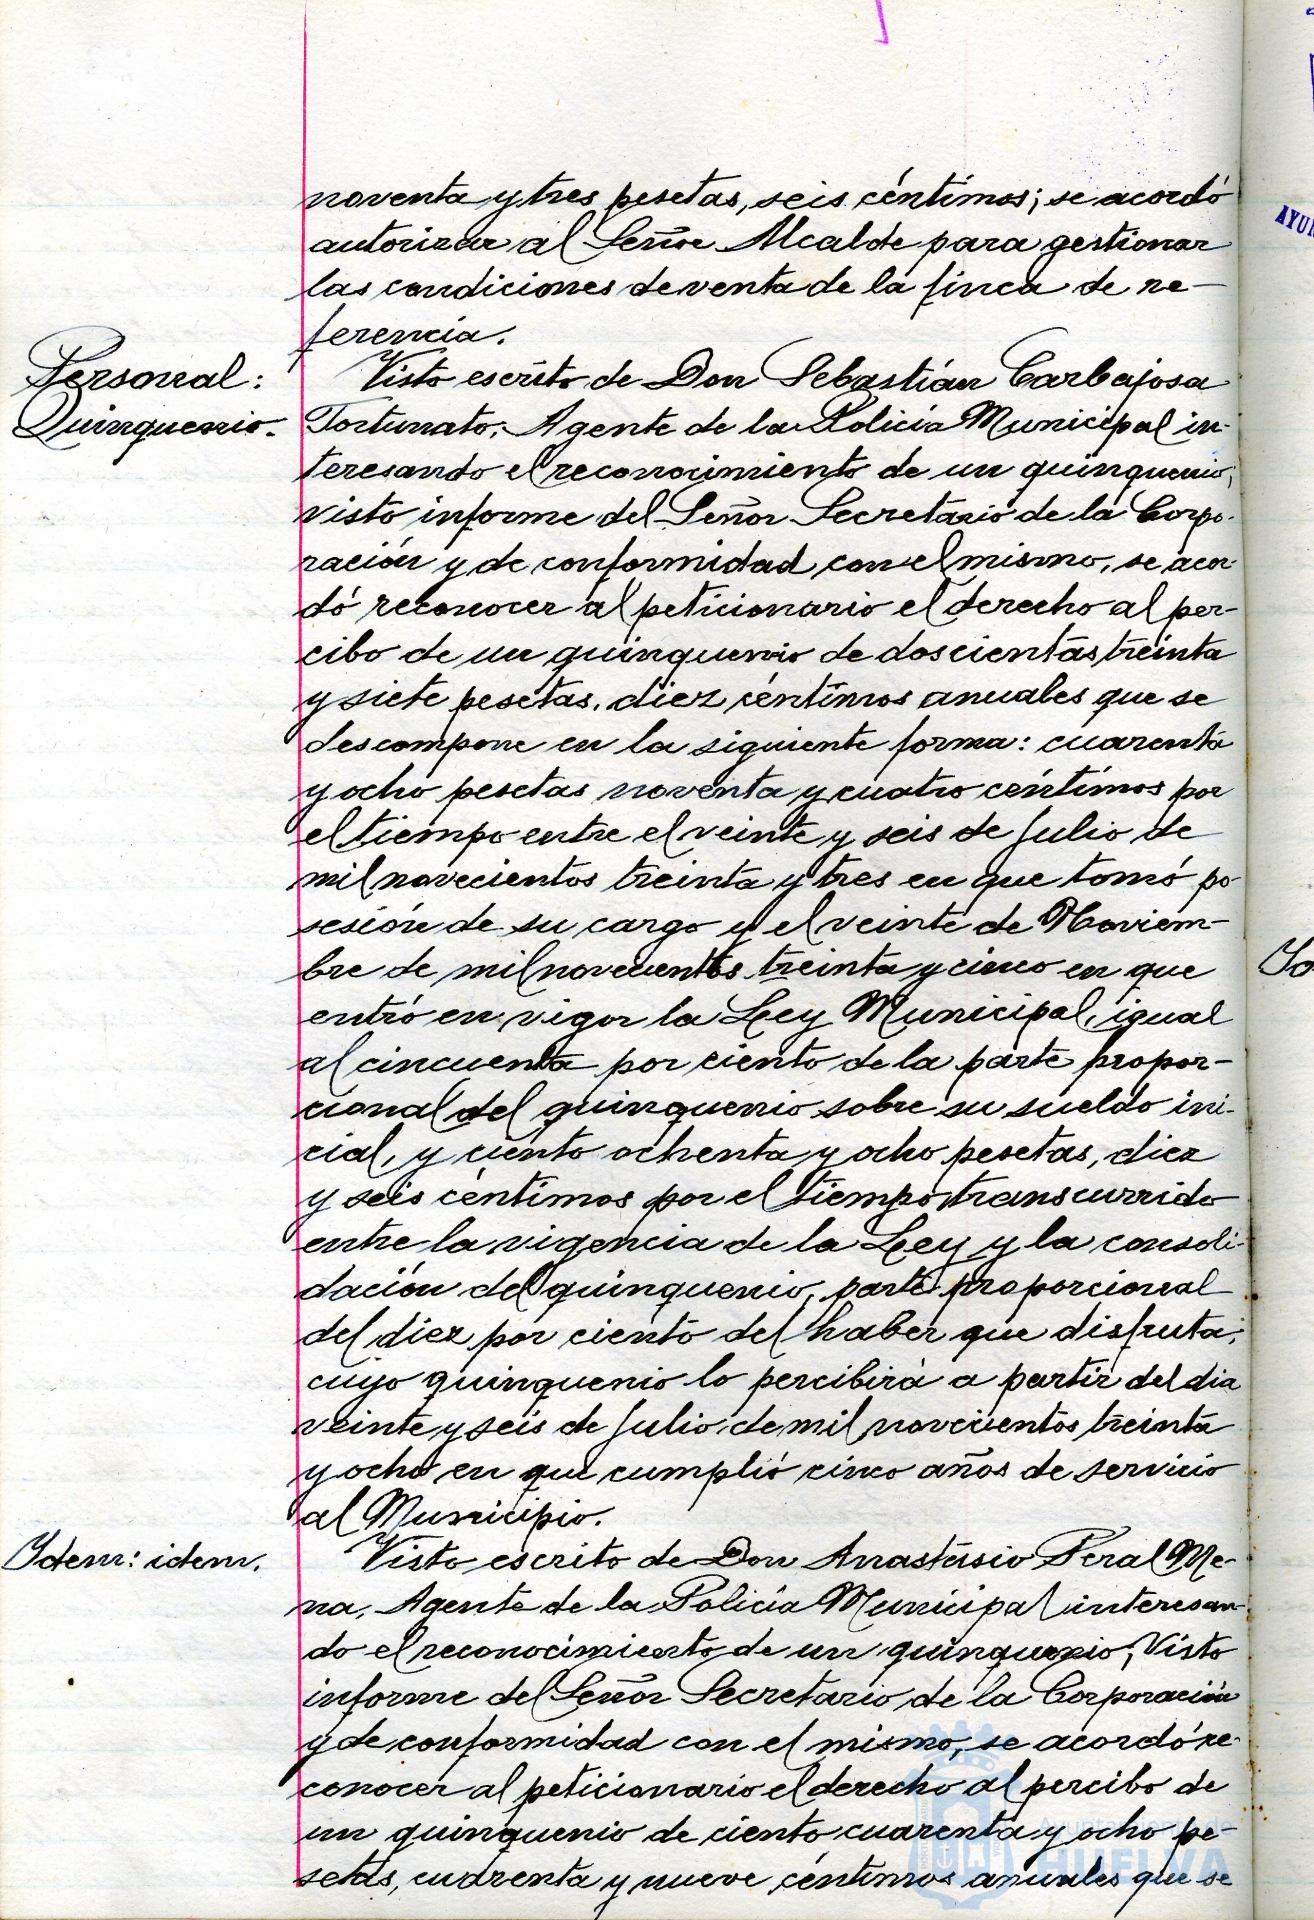 noventa y tres pesetas, seis céntimos; se acordó
autorizar al Señor Alcalde para gestionar
las condiciones de venta de la finca de re-
ferencia.
Personal:
Quinquenio.
Visto escrito de Don Sebastián Carbajosa
Fortunato, Agente de la Policía Municipal in-
teresando el reconocimiento de un quinquenio;
visto informe del Señor Secretario de la Corpo-
ración y de conformidad con el mismo, se acor-
dó reconocer al peticionario el derecho al per-
cibo de un quinquenio de doscientas treinta
y siete pesetas, diez céntimos anuales que se
descompone en la siguiente forma: cuarenta
y ocho pesetas noventa y cuatro céntimos por
el tiempo entre el veinte y seis de Julio de
mil novecientos treinta y tres en que tomó po
sesión de su cargo y el veinte de Noviem-
bre de mil novecientos treinta y cinco en que
entró en vigor la Ley Municipal, igual
al cincuenta por ciento de la parte propor-
cional del quinquenio sobre su sueldo ini-
cial, y ciento ochenta y ocho pesetas, diez
y seis céntimos por el tiempo transcurrido
entre la vigencia de la Ley y la consoli-
dación del quinquenio, parte proporcional
del diez por ciento del haber que disfruta;
cuyo quinquenio lo percibirá a partir del dia
veinte y seis de Julio de mil novecientos treinta
y ocho en que cumplió cinco años de servicio
al Municipio.
Idem: idem.
Visto escrito de Don Anastasio Peral Me-
na, Agente de la Policía Municipal interesan-
do el reconocimiento de un quinquenio; Visto
informe del Señor Secretario de la Corporación
y de conformidad con el mismo, se acordó re-
conocer al peticionario el derecho al percibo de
un quinquenio de ciento cuarenta y ocho pe-
setas, cuarenta y nueve céntimos anuales que se
HUELVA